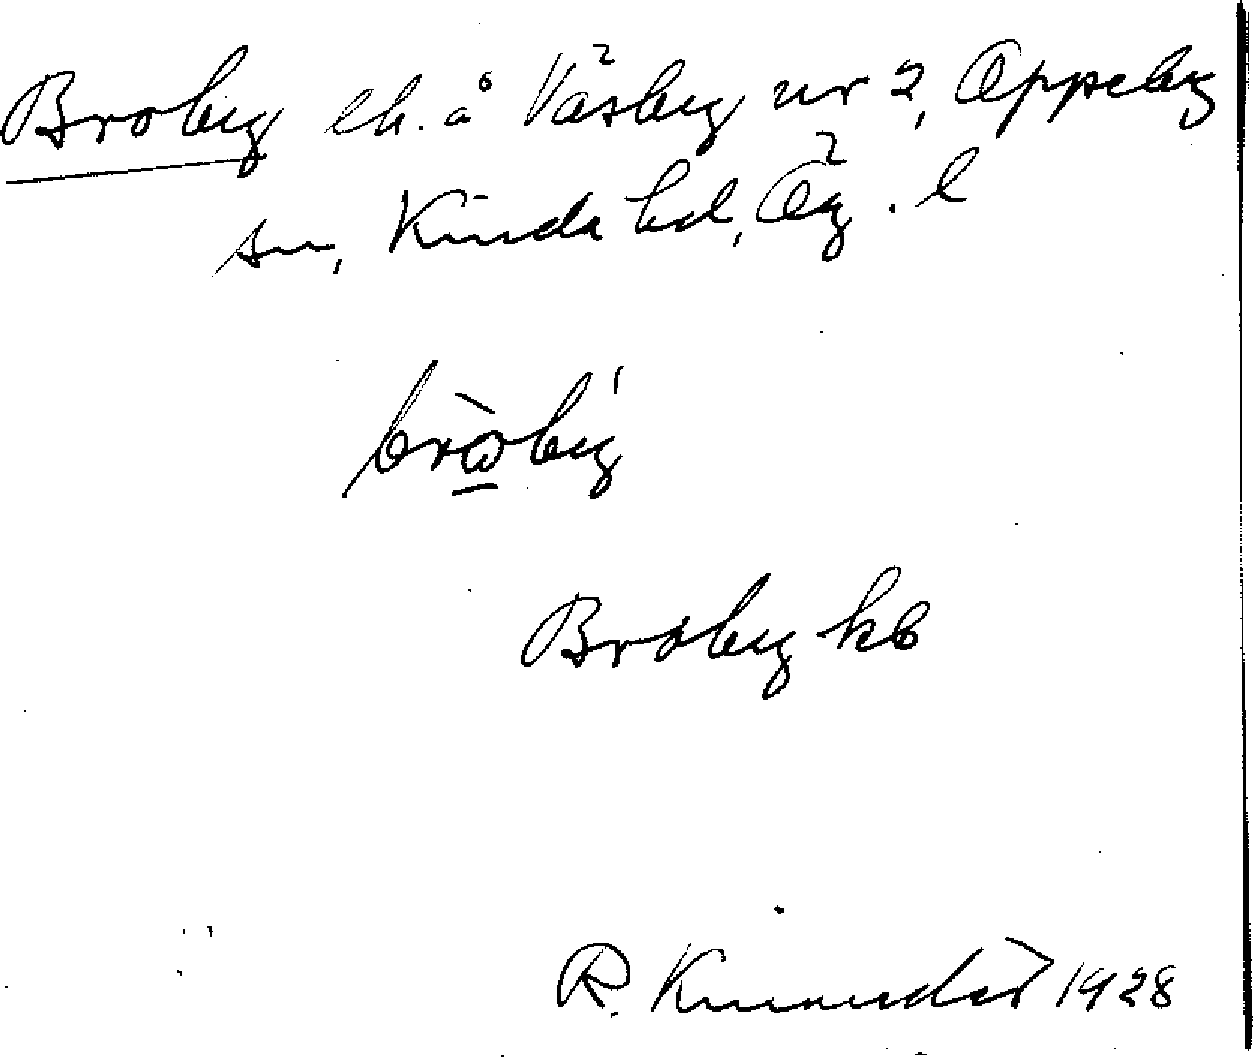 Broby lh. å Väsby nr 2, Oppeby
sn, Kinda hd, Ög. l
bròby
Broby kb
R. 1928